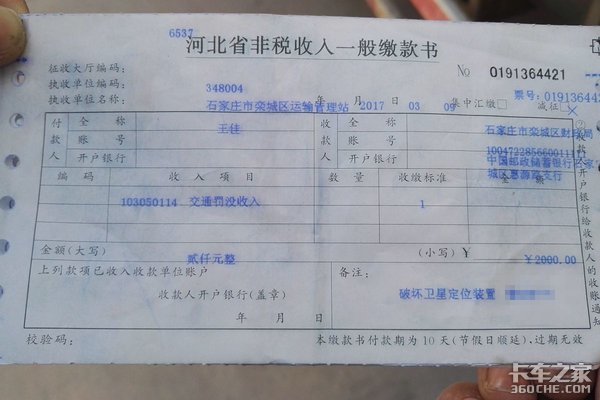 6537
河北省非税收入一般缴款书
征收大厅编码：
№ 0191364421
执收单位编码： 348004
票号：0191364
执收单位名称： 石家庄市栾城区运输管理站 2017 年 03 月 09 日 集中汇缴□ 减征□
付款人 全称 王佳 收款人 全称 石家庄市栾城区财政局
账号 账号
开户银行 开户银行 中国邮政储蓄银行
城区惠源路支行
编码 收入项目 数量 收缴标准 金额
103050114 交通罚没收入 1
金额(大写) 贰仟元整 (小写)￥ ￥2000.00
上列款项已收入收款单位账户 备注：
收款人开户银行(盖章) 破坏卫星定位装置
年 月 日
校验码： 本缴款书付款期为10天(节假日顺延)，过期无效
②
开户银行给收款人的收账通知
卡车之家
360che.com